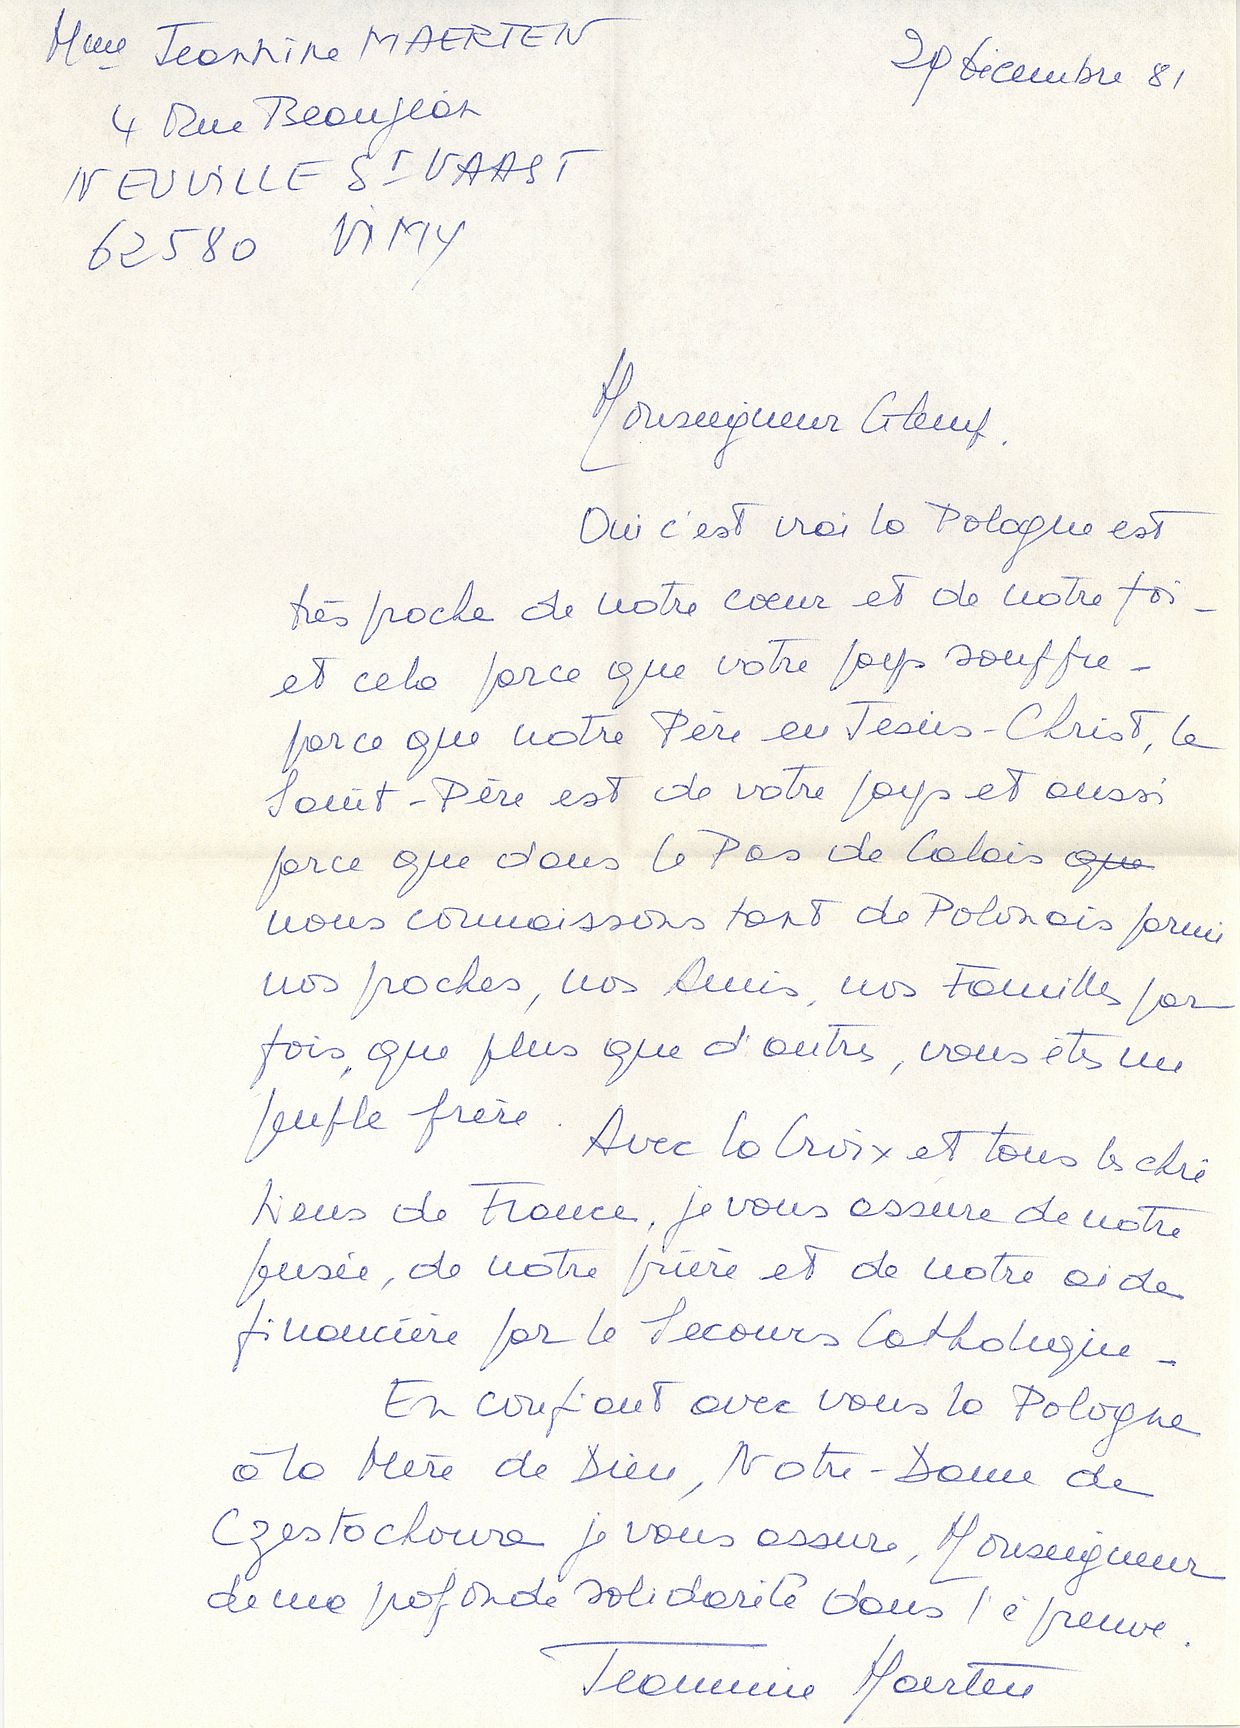 Mme Jeannine MAERTEN
29 décembre 81
4 Rue Beaujean
NEUVILLE St VAAST
62580 VIMY
Monseigneur Glemp.
Oui c'est vrai la Pologne est
très proche de notre cœur et de notre foi -
et cela parce que votre pays souffre -
parce que notre Père en Jésus-Christ, le
Saint-Père est de votre pays et aussi
parce que dans le Pas de Calais que
nous connaissons tant de Polonais parmi
nos proches, nos Amis, nos Familles par
fois, que plus que d'autres, vous êtes un
peuple frère.
Avec la Croix et tous les chré
tiens de France, je vous assure de notre
pensée, de notre prière et de notre aide
financière par le Secours Catholique -
En confiant avec vous la Pologne
à la Mère de Dieu, Notre-Dame de
Czestochowa je vous assure, Monseigneur
de ma profonde solidarité dans l'épreuve.
Jeannine Maerten